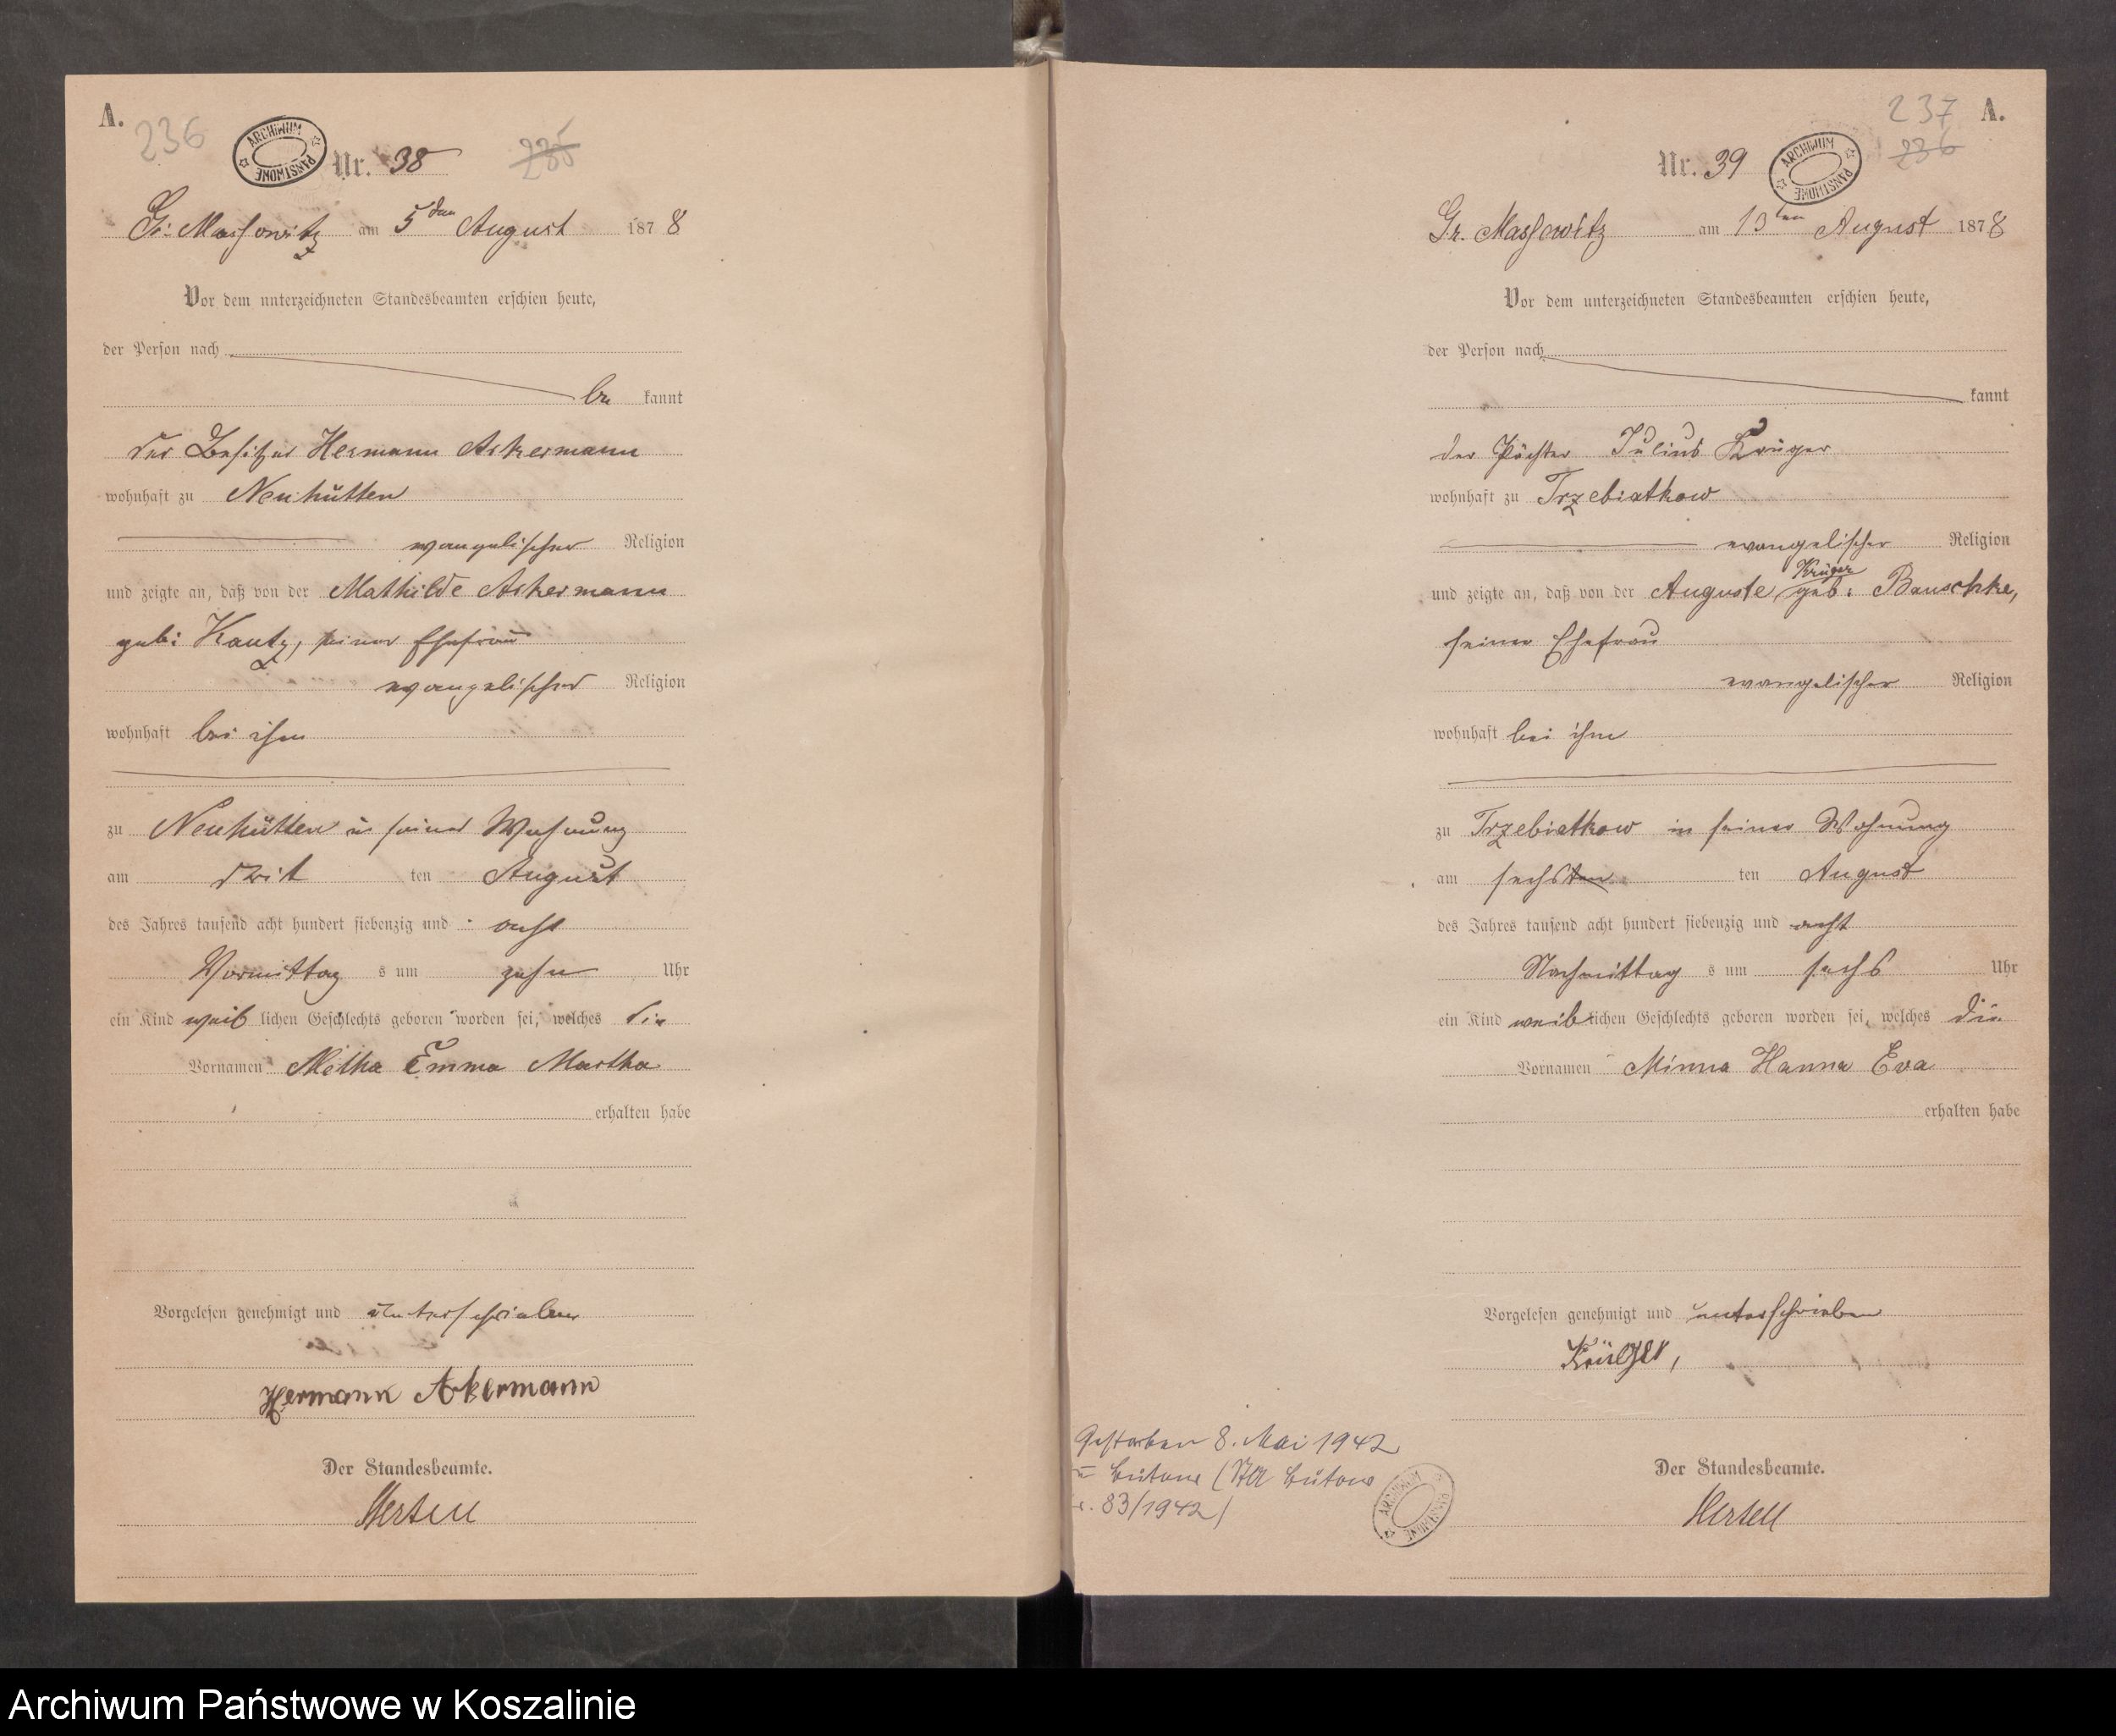 A.
236
ARCHIWUM PAŃSTWOWE
Nr. 38
235
Gr. Massowitz am 5ten August 1878
Vor dem unterzeichneten Standesbeamten erschien heute,
der Person nach
be kannt
der Besitzer Hermann Ackermann
wohnhaft zu Neuhütten
evangelischer Religion
und zeigte an, daß von der Mathilde Ackermann
geb: Kautz, seiner Ehefrau
evangelischer Religion
wohnhaft bei ihm
zu Neuhütten in seiner Wohnung
am dritt ten August
des Jahres tausend acht hundert siebenzig und acht
Vormittag s um zehn Uhr
ein Kind weib lichen Geschlechts geboren worden sei, welches die
Vornamen Emma Martha
erhalten habe
Vorgelesen genehmigt und unterschrieben
Hermann Ackermann
Der Standesbeamte.
Hertell
237 A.
236
Nr. 39
ARCHIWUM PAŃSTWOWE
Gr. Massowitz am 13ten August 1878
Vor dem unterzeichneten Standesbeamten erschien heute,
der Person nach
kannt
der Pächter Julius Krüger
wohnhaft zu Trzebiatkow
evangelischer Religion
Krüger
und zeigte an, daß von der Auguste, geb: Bauschke,
seiner Ehefrau
evangelischer Religion
wohnhaft bei ihm
zu Trzebiatkow in seiner Wohnung
am sechsten ten August
des Jahres tausend acht hundert siebenzig und acht
Nachmittag s um sechs Uhr
ein Kind weib lichen Geschlechts geboren worden sei, welches die
Vornamen Minna Hanna Eva
erhalten habe
Vorgelesen genehmigt und unterschrieben
Krüger,
Gestorben 8. Mai 1942
Bütow (StA Bütow
83/1942)
ARCHIWUM PAŃSTWOWE
Der Standesbeamte.
Hertell
Archiwum Państwowe w Koszalinie